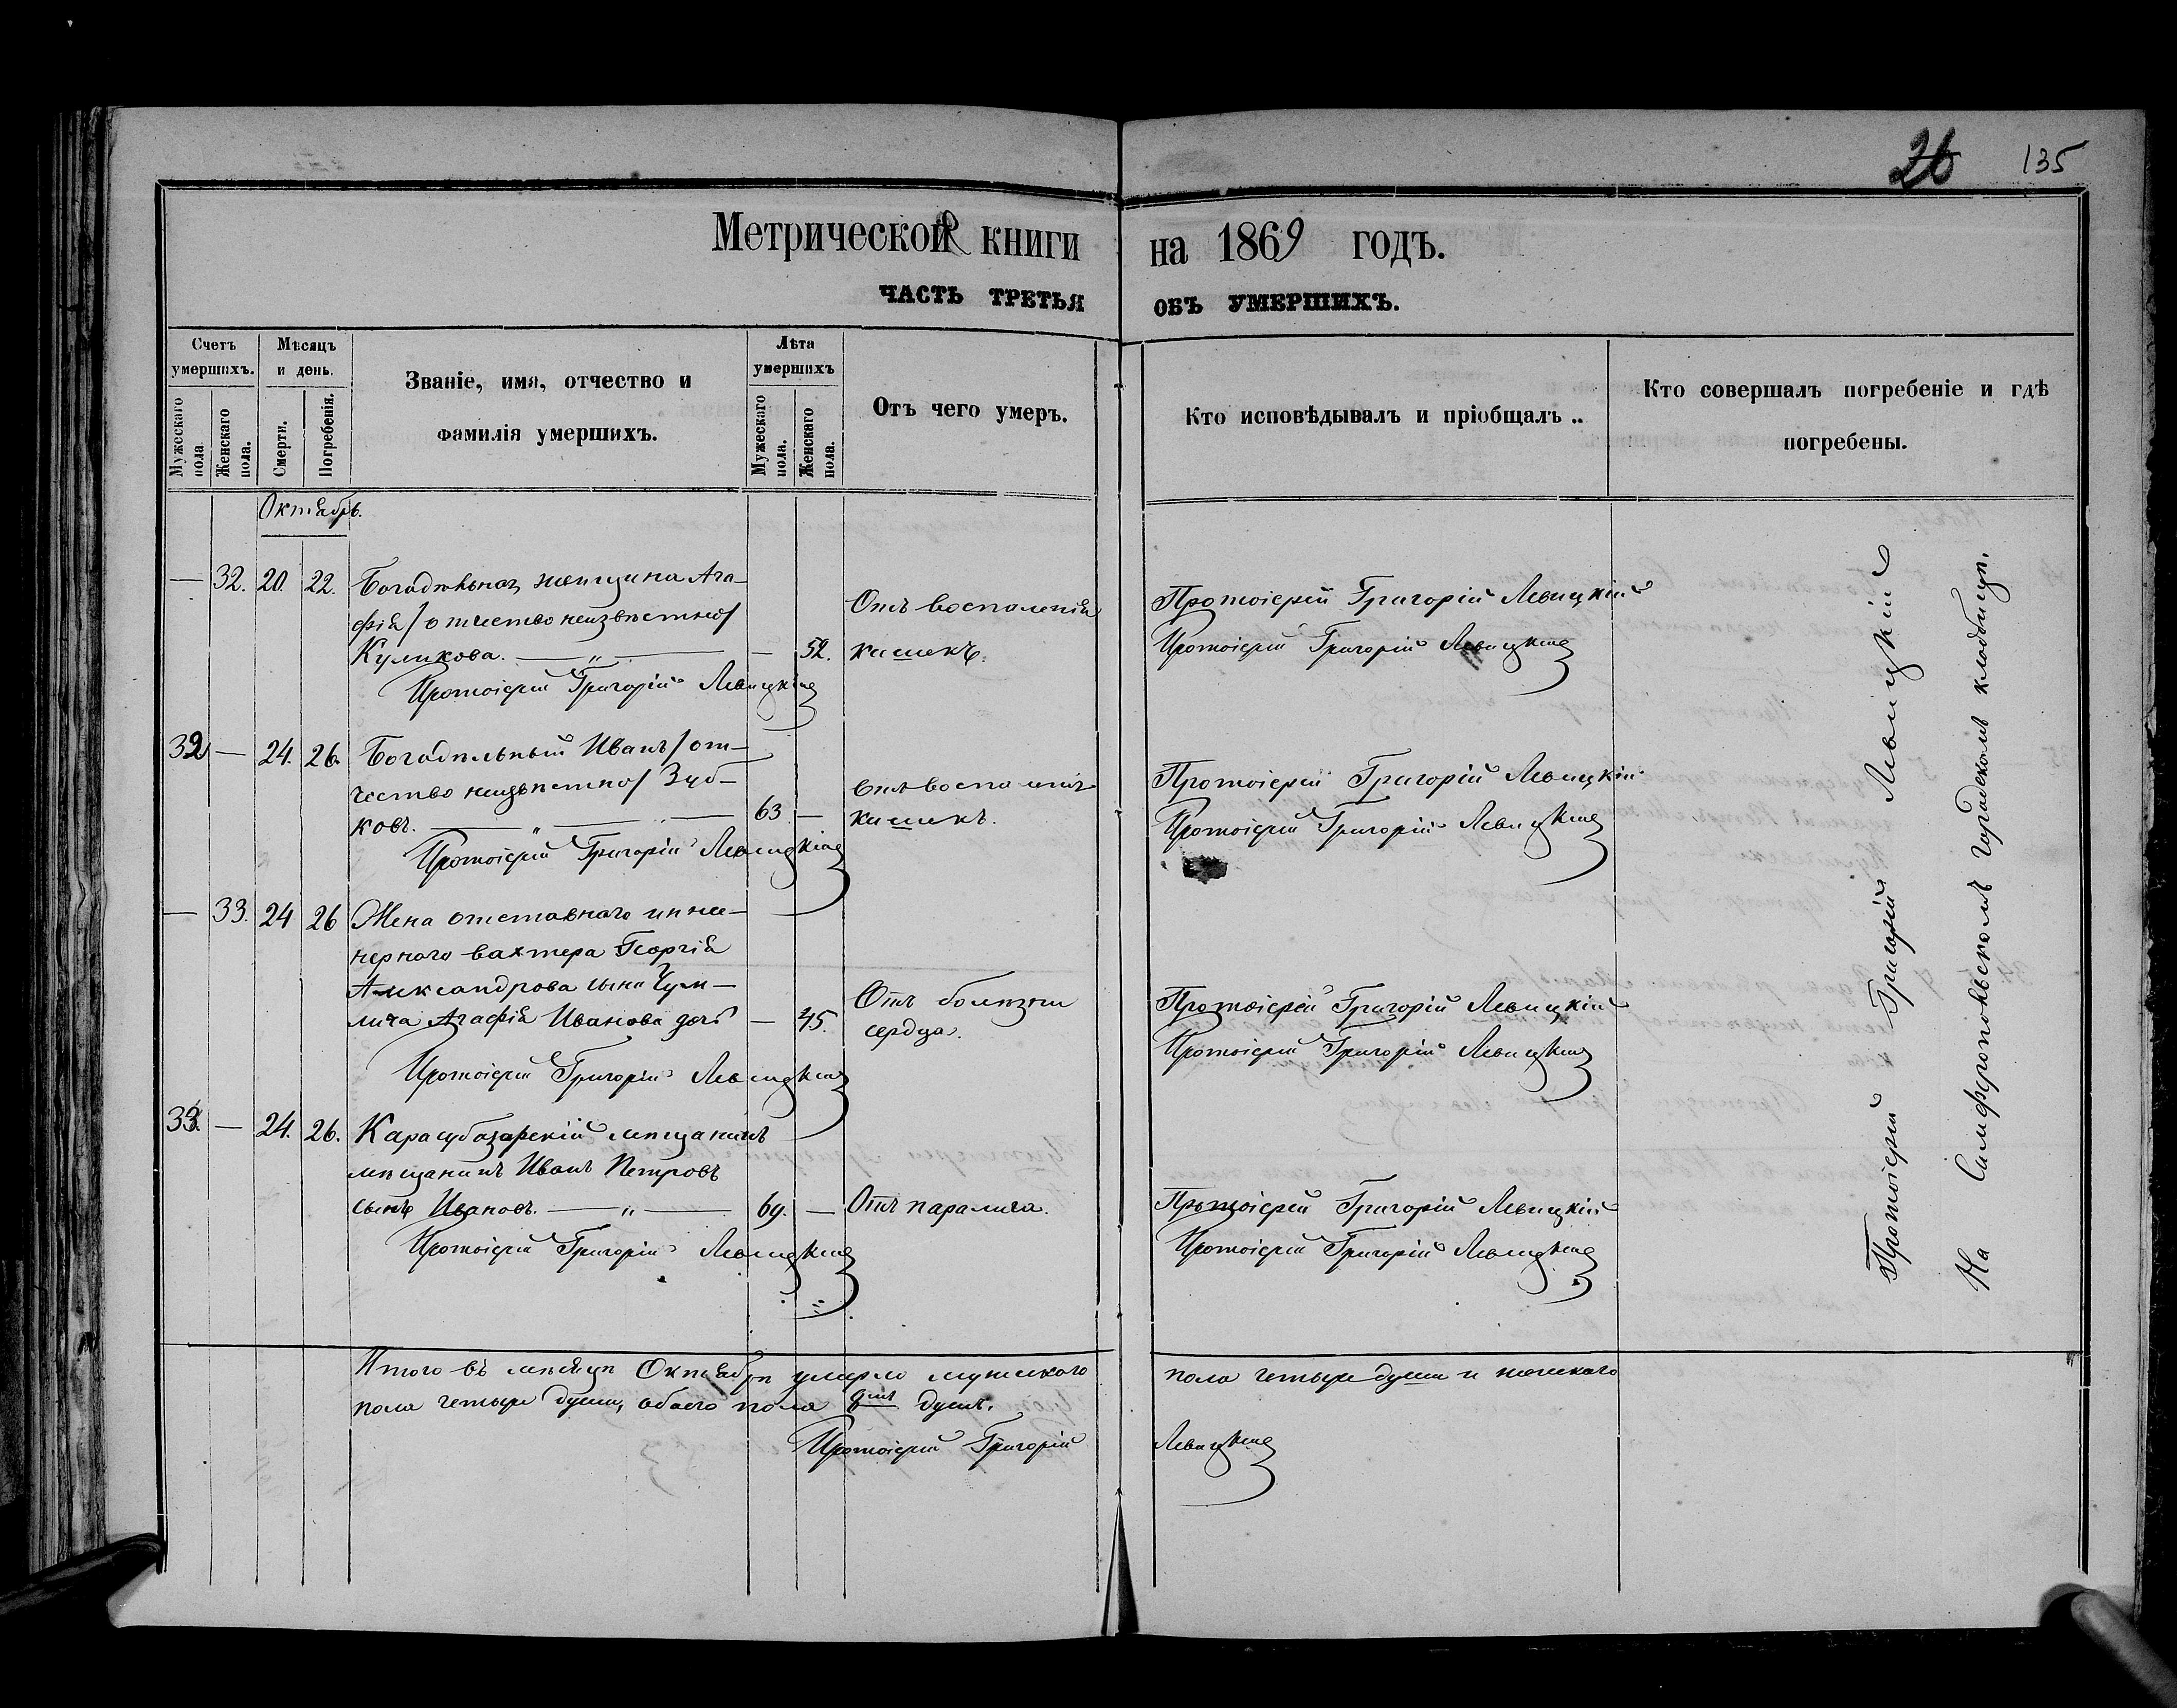 26 135
Метрической книги на 1869 годъ.
ЧАСТЬ ТРЕТЬЯ ОБЪ УМЕРШИХЪ.
Счетъ умершихъ.
Мужескаго пола
Женскаго пола.
Мѣсяцъ и день.
Смерти.
Погребенія.
Званіе, имя, отчество и
фамилія умершихъ.
Лѣта умершихъ
Мужескаго пола.
Женскаго пола.
Отъ чего умеръ.
Кто исповѣдывалъ и пріобщалъ
Кто совершалъ погребеніе и гдѣ
погребены.
Октябрь.
— 32. 20. 22. Богадѣльная женщина Ага-
фія /отчество неизвѣстно/
Куликова. — „ — — 52.
Отъ воспаленія
кишекъ.
Протоіерей Григорій Левицкій
Протоіерей Григорій Левицкій
Протоіерей Григорій Левицкій
32 — 24. 26. Богадѣльный Иванъ /от-
чество неизвѣстно/ Зуб-
ковъ. — „ — 63 —
Отъ воспаленія
кишекъ.
Протоіерей Григорій Левицкій
Протоіерей Григорій Левицкій
Протоіерей Григорій Левицкій
— 33. 24 26 Жена отставнаго инже-
нернаго вахтера Георгія
Александрова сына
Агафія Иванова дочь — 45.
Отъ болѣзни
сердца.
Протоіерей Григорій Левицкій
Протоіерей Григорій Левицкій
Протоіерей Григорій Левицкій
33. — 24. 26. Карасубазарскій мѣщанинъ
мѣщанинъ Иванъ Петровъ
сынъ Ивановъ. — „ — 69. — Отъ паралича.
Протоіерей Григорій Левицкій
Протоіерей Григорій Левицкій
Протоіерей Григорій Левицкій
Протоіерей Григорій Левицкій
На Симферопольскомъ городскомъ кладбищѣ.
Итого въ мѣсяцѣ Октябрѣ умерло мужескаго пола четыре души и женскаго
пола четыре души, обоего пола душъ.
Протоіерей Григорій Левицкій